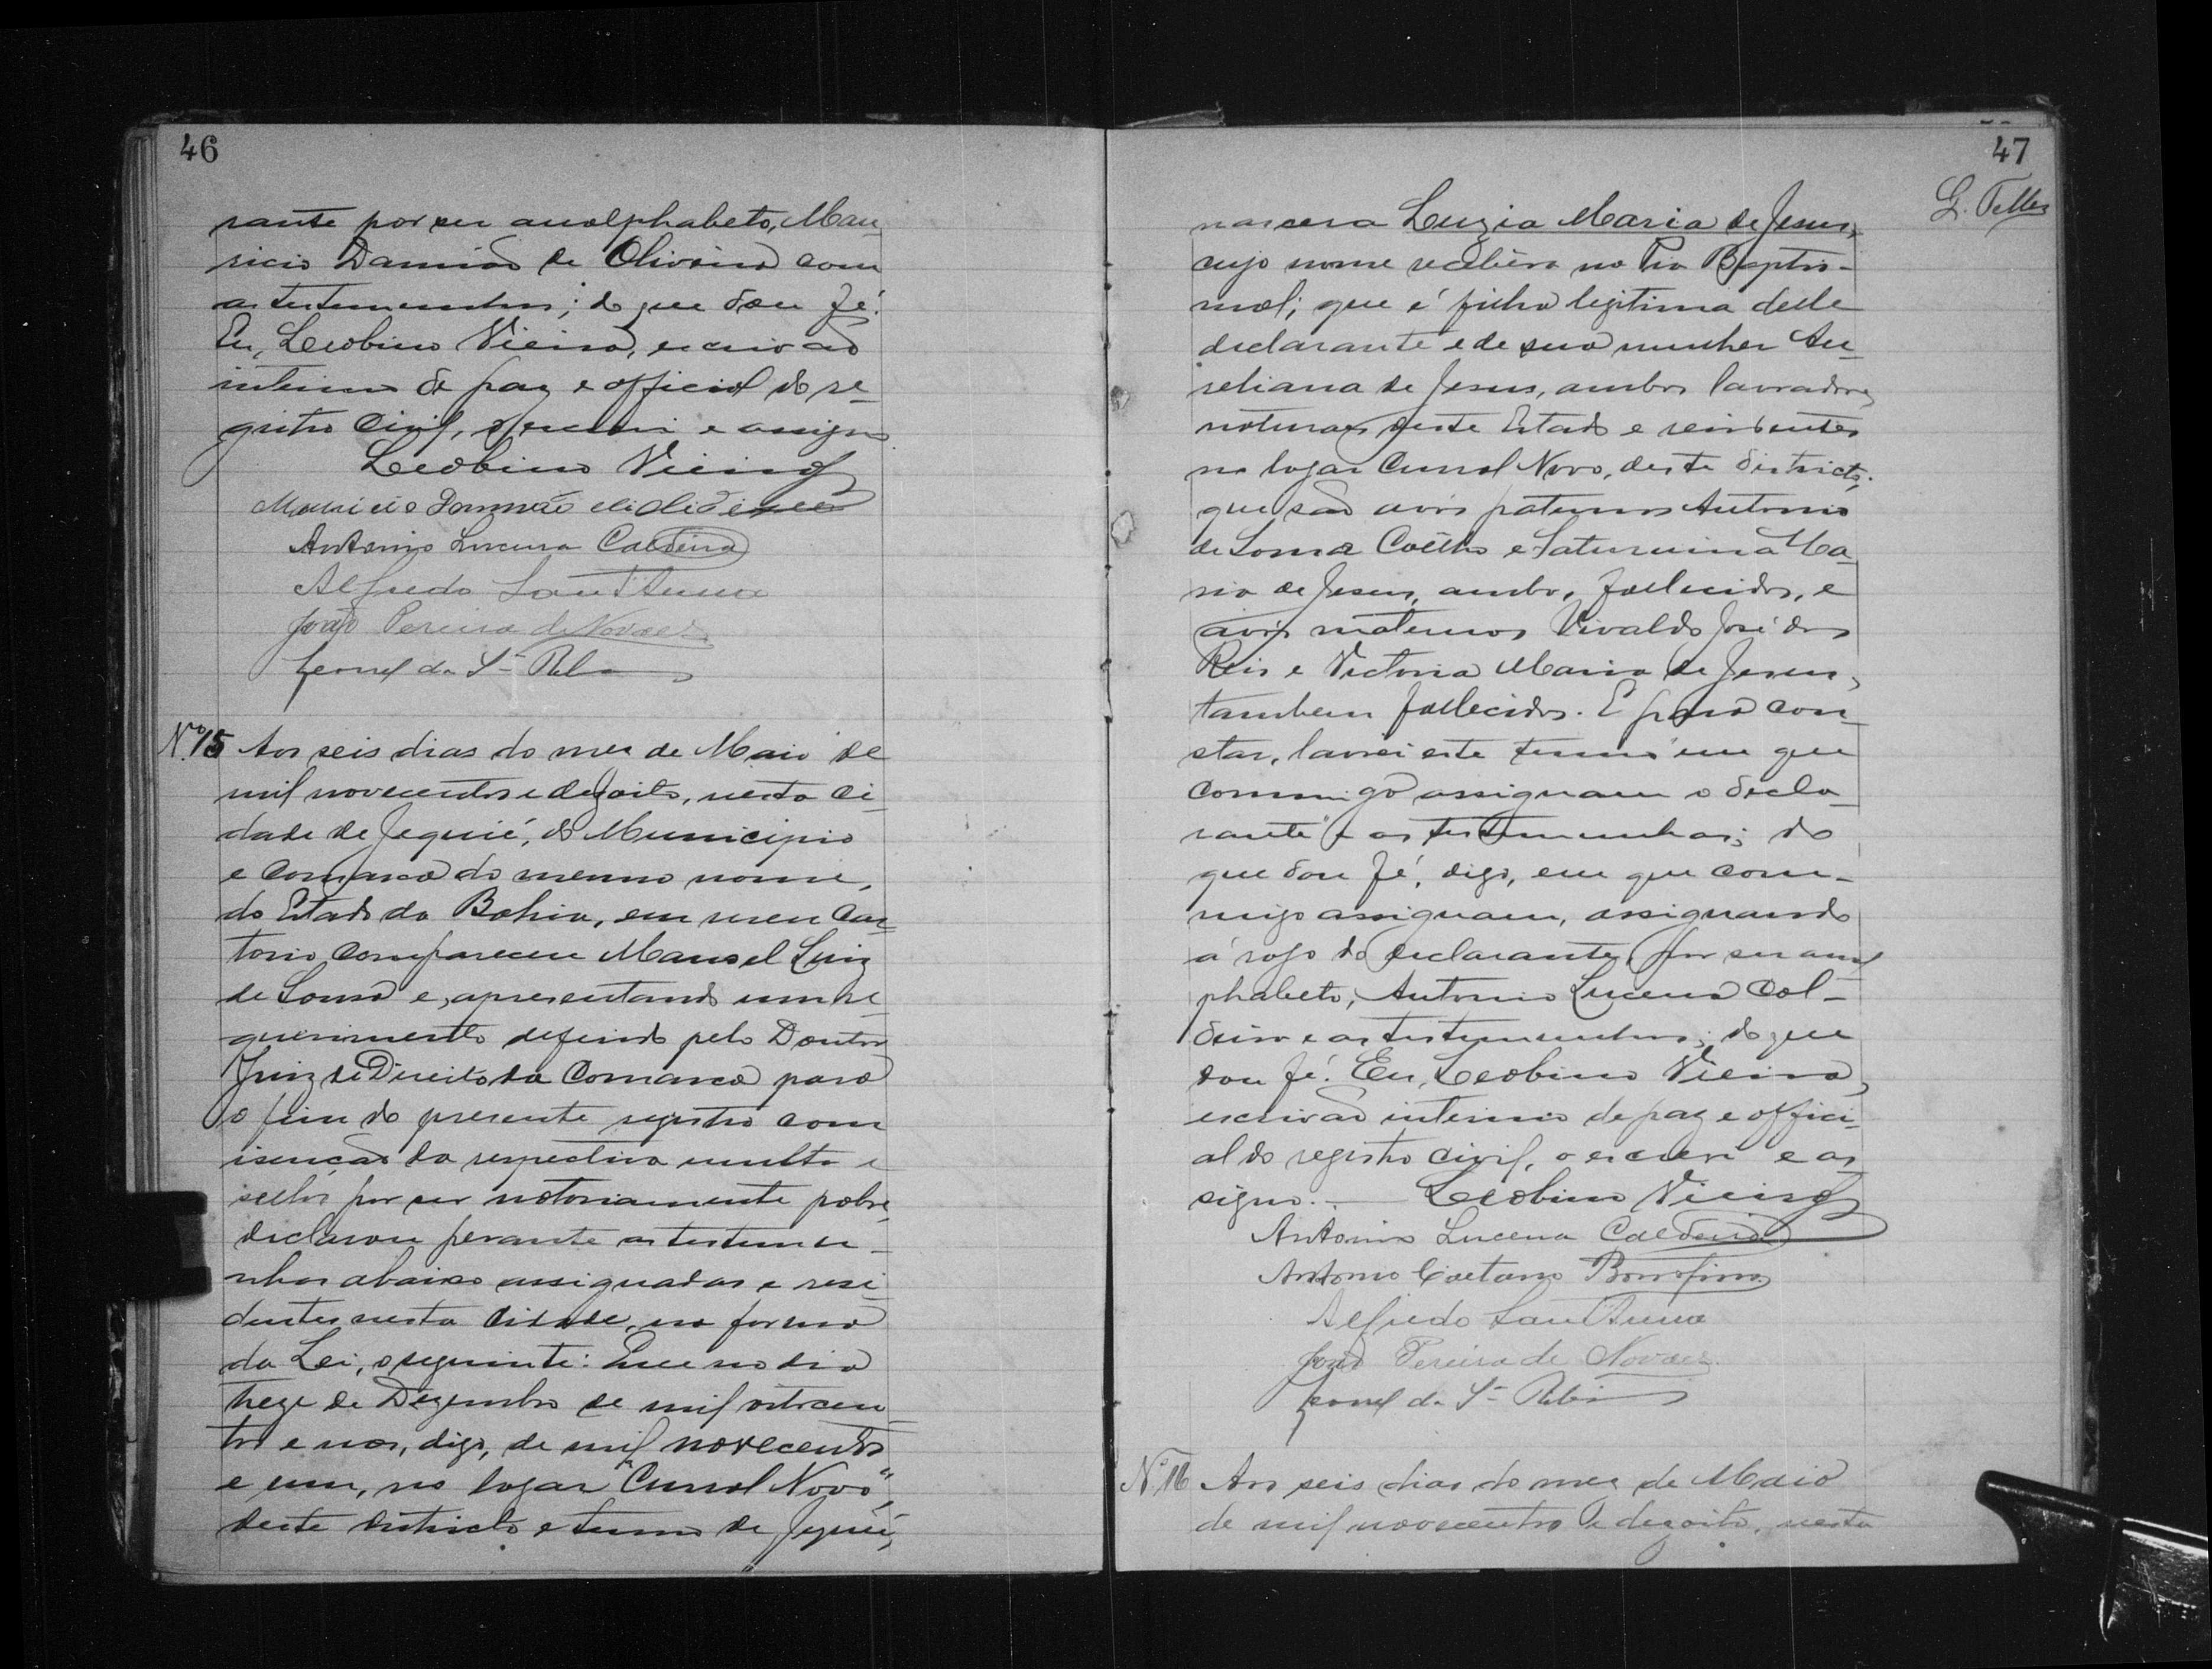 46
rante por ser analphabeto, Mau-
ricio Damião de Oliveira com
as testemunhas; do que dou fé.
Eu, Leobino Vieira, escrivão
interino de paz e official do re-
gistro Civil, o escrevi e assigno
Leobino Vieira
Mauricio Damião de Oliveira
Antonio Lucena Caldeira
Alfredo Sant'Anna
João Pereira de Novaes
Leonel da Sª
Nº 15 Aos seis dias do mez de Maio de
mil novecentos e dezoito, nesta ci-
dade de Jequié, do Municipio
e Comarca do mesmo nome,
do Estado da Bahia, em meu Car-
torio compareceu Manoel Luiz
de Souza e, apresentando um re-
querimento deferido pelo Doutor
Juiz de Direito da Comarca para
o fim do presente registro com
isenção da respectiva multa e
sellos por ser notoriamente pobre,
declarou perante as testemu-
nhas abaixo assignadas e resi-
dentes nesta cidade, na forma
da Lei, o seguinte: Que no dia
treze de Dezembro de mil oitocen-
tos e nov, digo, de mil novecentos
e um, no logar "Curral Novo",
deste districto e termo de Jequié,
47
G. Telles
nascera Luzia Maria de Jesus,
cujo nome recebêra na Pia Baptis-
mal; que é filha legitima delle
declarante e de sua mulher Au-
reliana de Jesus, ambos lavradores
naturaes deste Estado e residentes
no logar Curral Novo, deste districto;
que são avós paternos Antonio
de Souza Coêlho e Saturnina Ma-
ria de Jesus, ambos fallecidos, e
avós maternos Vivaldo José dos
Reis e Victoria Maria de Jesus,
tambem fallecidos. E para con-
star, lavrei este termo em que
commigo assignam o decla-
rante e as testemunhas; do
que dou fé, digo, em que com-
migo assignam, assignando
á rogo do declarante, por ser anal
phabeto, Antonio Lucena Cal-
deira e as testemunhas; do que
dou fé. Eu, Leobino Vieira,
escrivão interino de paz e offici-
al do registro civil, o escrevi e as
signo. - Leobino Vieira
Antonio Lucena Caldeira
Antonio Caetano Bomfim
Alfredo Sant'Anna
João Pereira de Novaes
Leonel da Sª
Nº 16 Aos seis dias do mez de Maio
de mil novecentos e dezoito, nesta